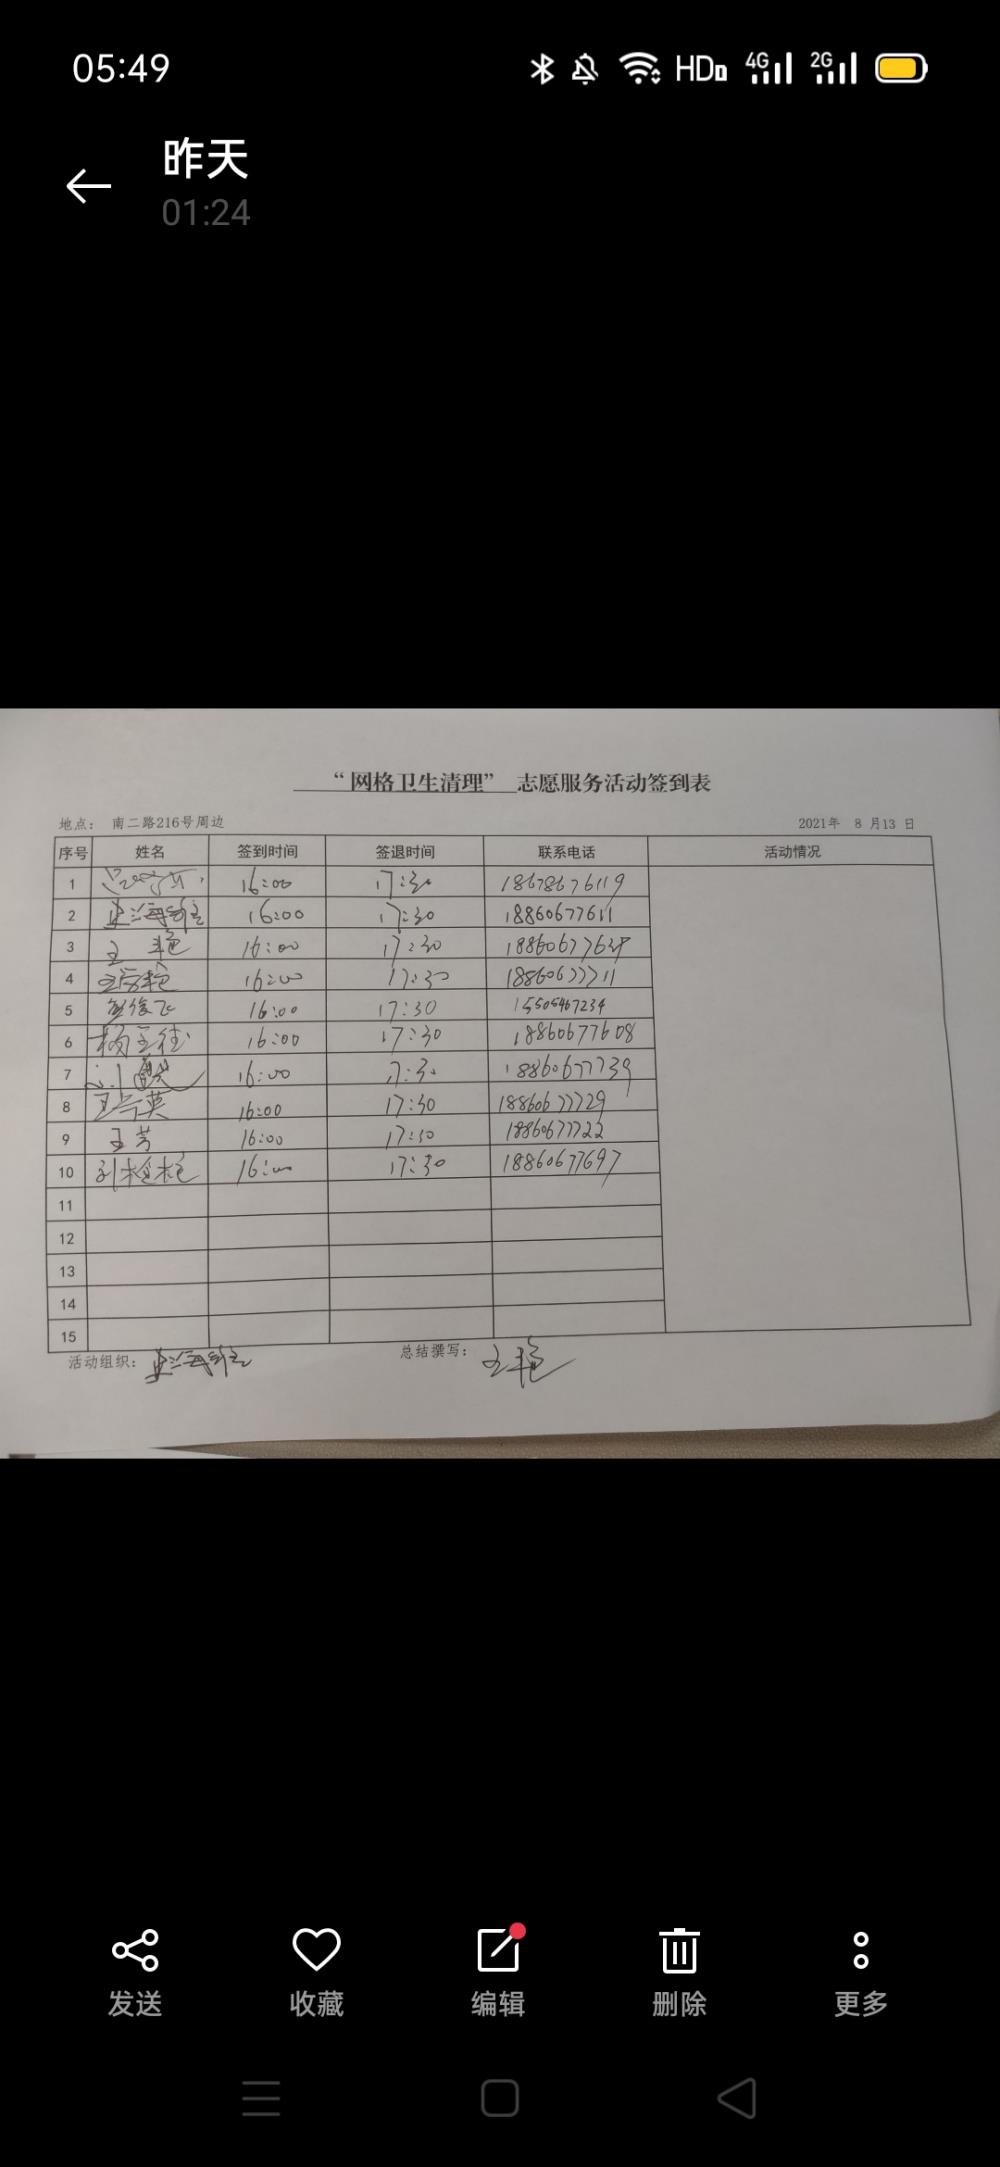 05:49
HD 4G 2G
昨天
01:24
“网格卫生清理” 志愿服务活动签到表
地点： 南二路216号周边 2021年 8 月13 日
序号 姓名 签到时间 签退时间 联系电话 活动情况
1 16:00 17:30 18678676119
2 16:00 17:30 18860677611
3 王艳 16:00 17:30
4 16:00 17:30 18860677711
5 16:00 17:30 15505467234
6 16:00 17:30 18860677608
7 16:00 17:30 18860677739
8 16:00 17:30 18860677729
9 王芳 16:00 17:30 18860677722
10 16:00 17:30 18860677697
11
12
13
14
15
活动组织： 总结撰写： 王艳
发送 收藏 编辑 删除 更多